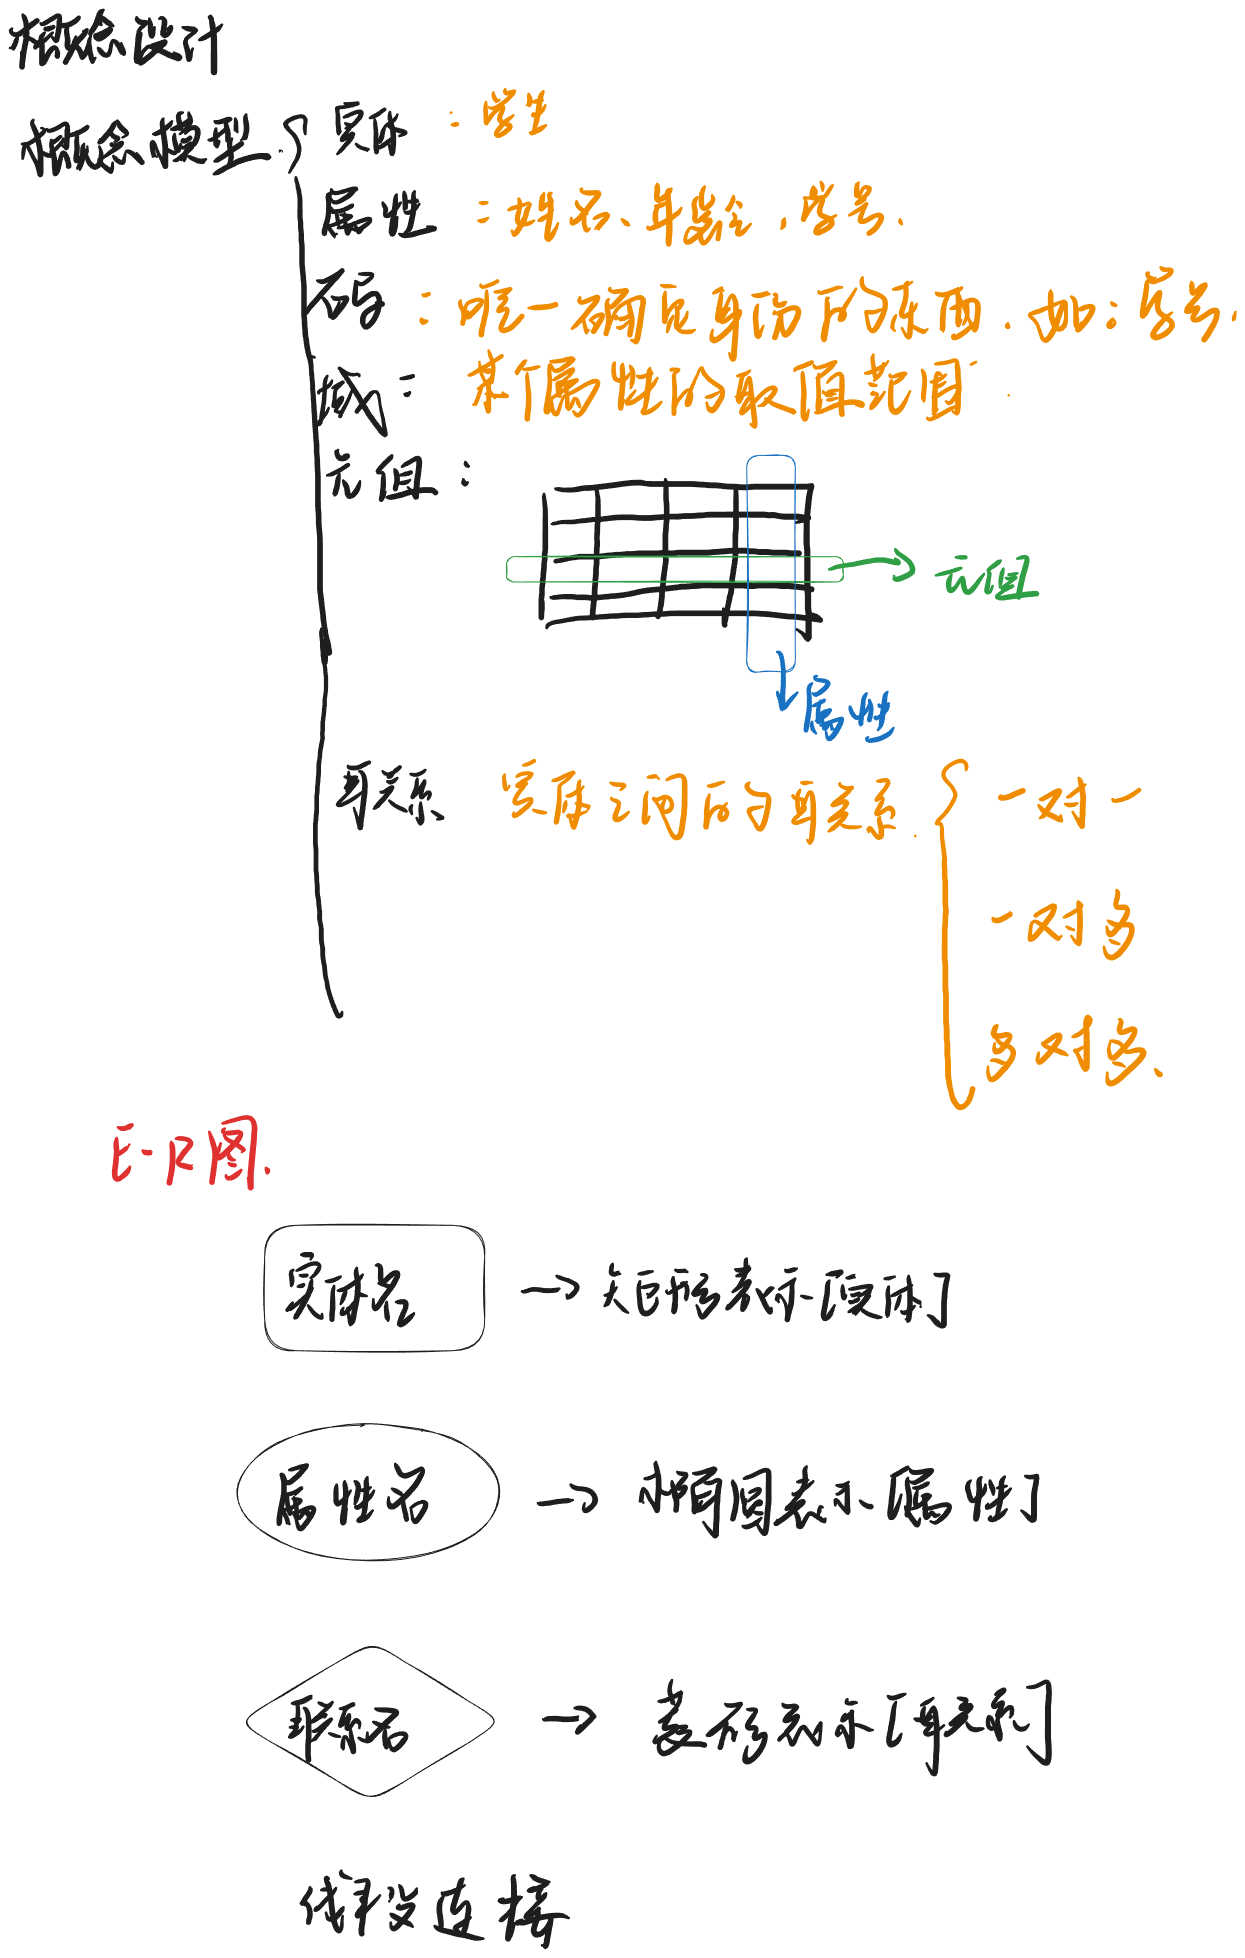 概念设计
概念模型
实体:学生
属性:姓名、年龄,学号.
码:唯一确定身份的东西.如:学号.
域:某个属性的取值范围
元组:
元组
属性
联系 实体之间的联系.
一对一
一对多
多对多、
E-R图.
实体名 → 矩形表示[实体]
属性名 → 椭圆表示[属性]
联系名 → 菱形表示[联系]
线段连接